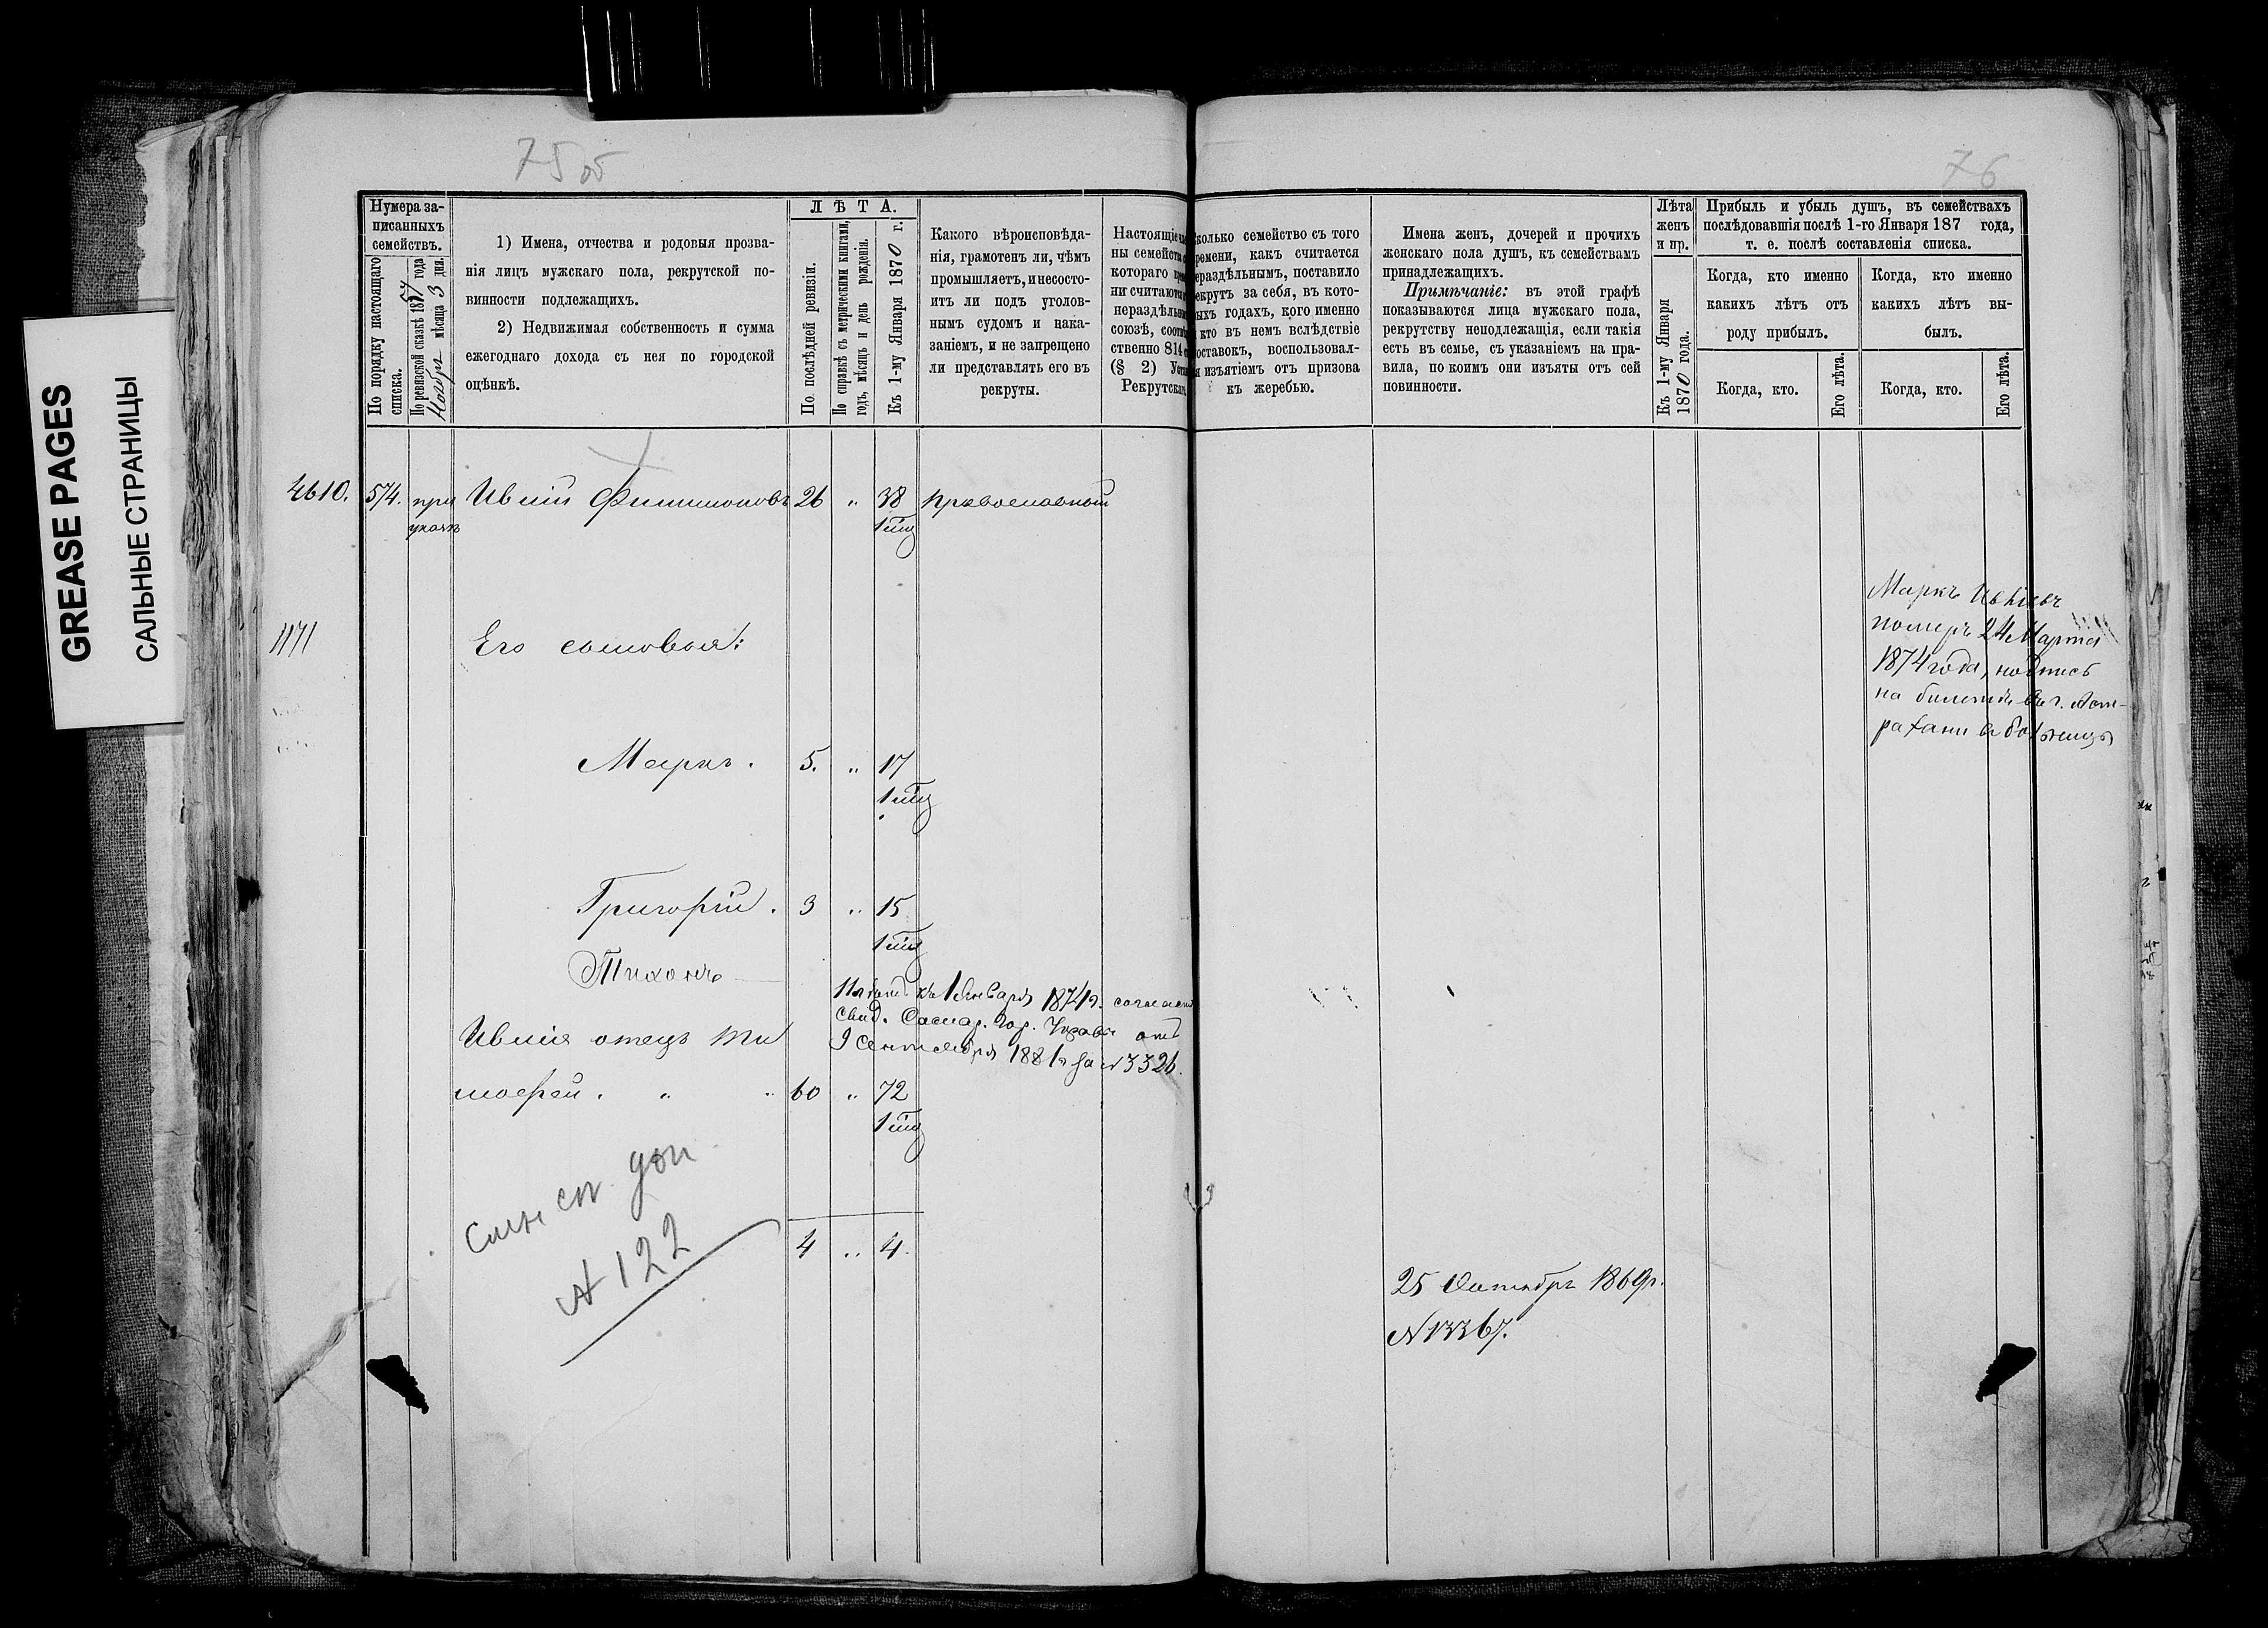 GREASE PAGES
САЛЬНЫЕ СТРАНИЦЫ
75 об
76
Нумера за-
писанныхъ
семействъ.
По порядку настоящаго
списка.
По ревизской сказкѣ 1857 года
Ноября мѣсяца 3 дня.
1) Имена, отчества и родовыя прозва-
нія лицъ мужскаго пола, рекрутской по-
винности подлежащихъ.
2) Недвижимая собственность и сумма
ежегоднаго дохода съ нея по городской
оцѣнкѣ.
ЛѢТА.
По послѣдней ревизіи.
По справкѣ съ метрическими книгами,
годъ, мѣсяцъ и день рожденія.
Къ 1-му Января 1870 г.
Какого вѣроисповѣда-
нія, грамотенъ ли, чѣмъ
промышляетъ, и несосто-
итъ ли подъ уголов-
нымъ судомъ и нака-
заніемъ, и не запрещено
ли представлять его въ
рекруты.
Настоящіе
ны семейства
котораго
ни считаются
нераздѣльны
союзѣ, соотвѣт
ственно 814
(§ 2) Устава
Рекрутскаго
сколько семейство съ того
времени, какъ считается
нераздѣльнымъ, поставило
рекрутъ за себя, въ кото-
рыхъ годахъ, кого именно
и кто въ немъ вслѣдствіе
поставокъ, воспользовал-
ся изъятіемъ отъ призова
къ жеребью.
Имена женъ, дочерей и прочихъ
женскаго пола душъ, къ семействамъ
принадлежащихъ.
Примѣчаніе: въ этой графѣ
показываются лица мужскаго пола,
рекрутству неподлежащія, если такія
есть въ семьѣ, съ указаніемъ на пра-
вила, по коимъ они изъяты отъ сей
повинности.
Лѣта
женъ
и пр.
Къ 1-му Января
1870 года.
Прибыль и убыль душъ, въ семействахъ
послѣдовавшія послѣ 1-го Января 187 года,
т. е. послѣ составленія списка.
Когда, кто именно
какихъ лѣтъ отъ
роду прибылъ.
Когда, кто.
Его лѣта.
Когда, кто именно
какихъ лѣтъ вы-
былъ.
Когда, кто.
Его лѣта.
4610. 574. при Ивлій Филимоновъ 26 " 38 православный
указѣ 1 мц
1171 Его сыновья:
Маркъ. 5. " 17
1 мц
Григорій. 3 " 15
1 мц
Тихонъ
11 лѣтъ къ 1 Января 1874 г. согласно
свид. Самар. Гор. Управы отъ
9 Сентября 1881 г за № 3326.
Ивлія отецъ Ти
мофей. " " 60 " 72
1 мц
4 " 4.
№ 122
25 Октября 1869 г.
№ 13367.
Маркъ Ивліевъ
померъ 24 Марта
1874 года, надпись
на билетѣ въ г. Аст-
рахани въ больницѣ